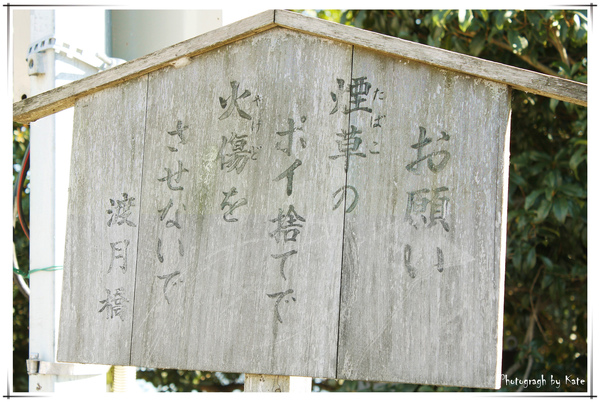 お願い
煙草の
たばこ
ポイ捨てで
火傷を
やけど
させないで
渡月橋
Photograph by Kate